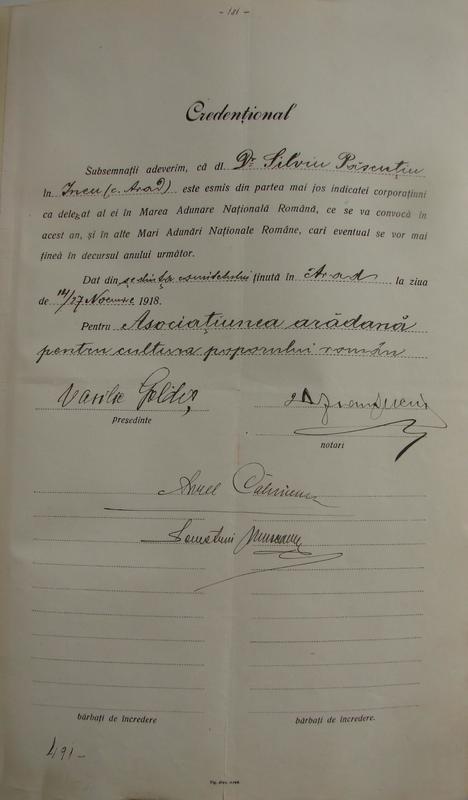 - 181 -
Credențional
Subsemnații adeverim, că dl. Dr Silviu Păscuțiu
în Ineu (c. Arad) este esmis din partea mai jos indicatei corporațiuni
ca delegat al ei în Marea Adunare Națională Română, ce se va convocă în
acest an, și în alte Mari Adunări Naționale Române, cari eventual se vor mai
ținea în decursul anului următor.
Dat din ședința comitetului ținută în Arad la ziua
de 14/27 Noemvre 1918.
Pentru Asociațiunea arădană
pentru cultura poporului român
Vasilie Goldiș
președinte
notari
Aurel
bărbați de încredere bărbați de încredere.
491-